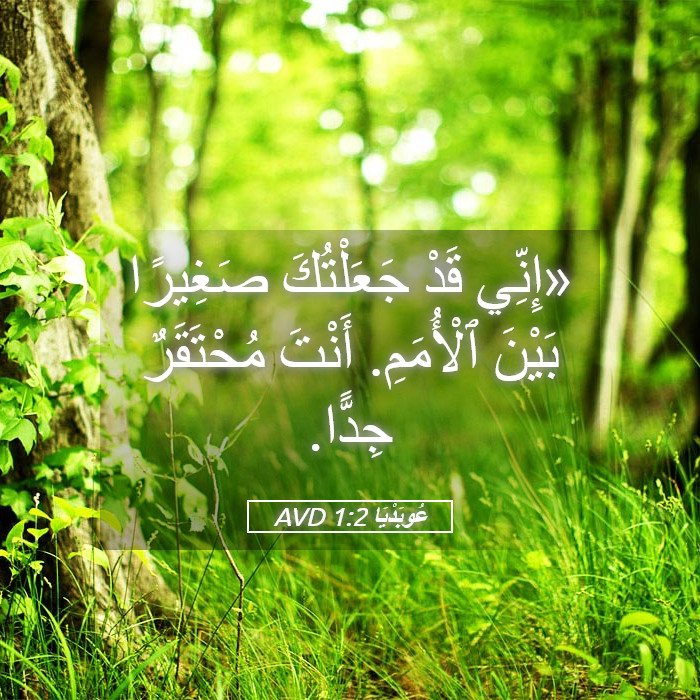 «إِنِّي قَدْ جَعَلْتُكَ صَغِيرًا
بَيْنَ ٱلْأُمَمِ. أَنْتَ مُحْتَقَرٌ
جِدًّا.
عُوبَدْيَا 1:2 AVD